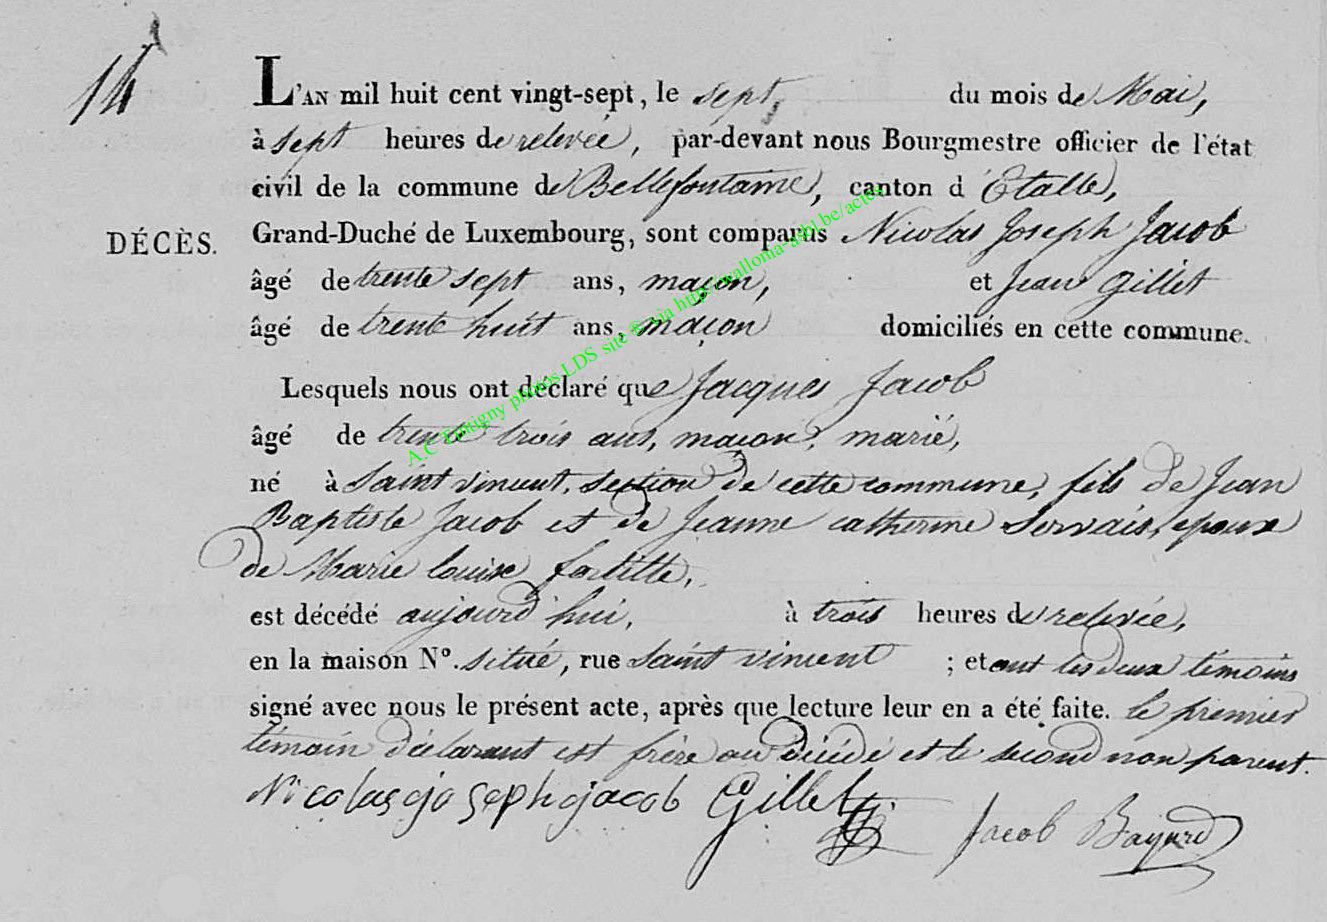 14
L'AN mil huit cent vingt-sept, le sept, du mois de Mai,
à sept heures de relevée, par-devant nous Bourgmestre officier de l'état
civil de la commune de Bellefontaine, canton d'Etalle,
DÉCÈS.
Grand-Duché de Luxembourg, sont comparus Nicolas Joseph Jacob
âgé de trente sept ans, maçon, et Jean Gillet
âgé de trente huit ans, maçon domiciliés en cette commune.
Lesquels nous ont déclaré que Jacques Jacob
âgé de trente trois ans, maçon, marié,
né à Saint vincent, section de cette commune, fils de Jean
Baptiste Jacob et de Jeanne catherine Servais, epoux
de Marie louise fortitte,
est décédé aujourd'hui, à trois heures de relevée,
en la maison Nº. situé, rue Saint vincent ; et ont les deux témoins
signé avec nous le présent acte, après que lecture leur en a été faite. le premier
témoin déclarant est frère au décédé et le second non parent.
Nicolas joseph jacob Gillet Jacob Bayard
A.C photos LDS site via http://walloma-asbl.be/actes